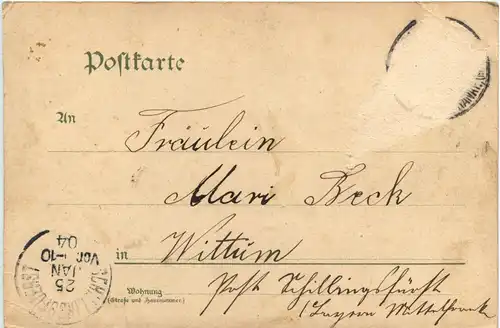 Postkarte
An
Fräulein
Mari Beck
in Wittum
Wohnung
(Straße und Hausnummer)
Post Schillingsfürst
(Bayern Mittelfrank
SCHILLINGSFUERST
25
JAN
Vor. 1-10
04